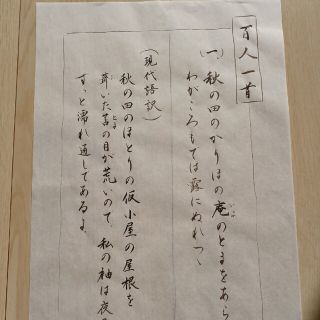 百人一首
(一)秋の田のかりほの庵のとまをあら
いほ
わがころもでは露にぬれつゝ
(現代語訳)
秋の田のほとりの仮小屋の屋根を
葺いた苫の目が荒いので 私の袖は夜
ふ
とま
ずっと濡れ通してあるよ